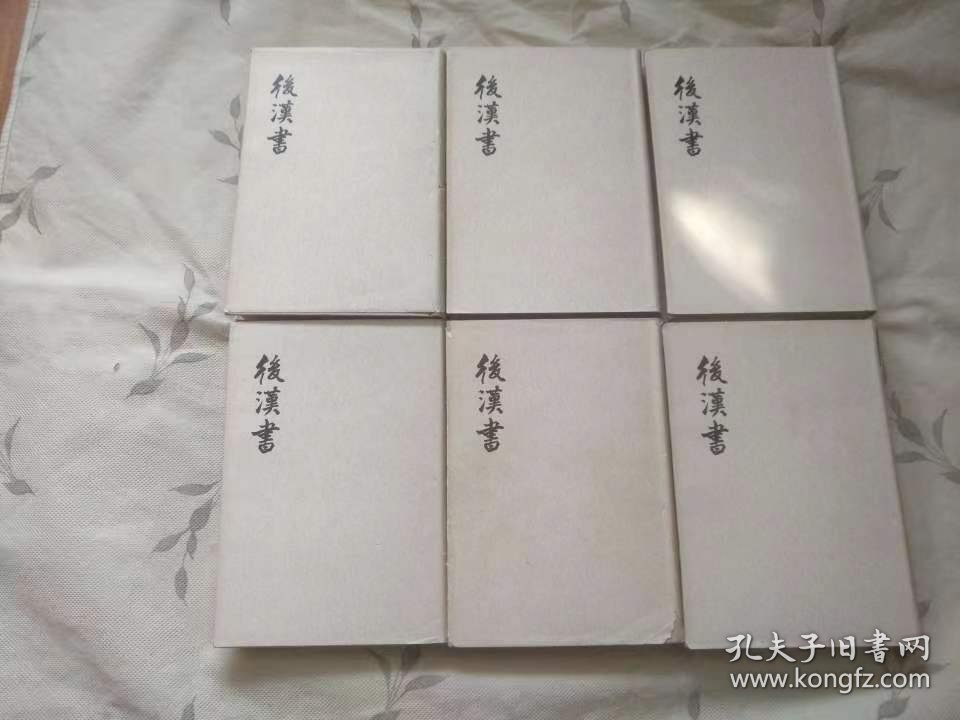 後漢書
後漢書
後漢書
後漢書
後漢書
後漢書
孔夫子旧书网
www.kongfz.com